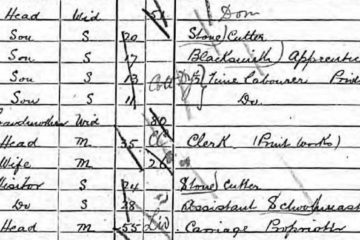 Head Wid 54 Dom
Son S 20 Stone Cutter
Son S 17 Blacksmith Apprentic
Son S 13 ½ Time Labourer Prin
Son S 11 Do.
Grandmother Wid 80
Head M 35 Clerk (Print Works)
Wife M 26
Visitor S 24 Stone Cutter
Do S 28 Assistant Schoolmast
Head M 55 Liv Carriage Proprietor